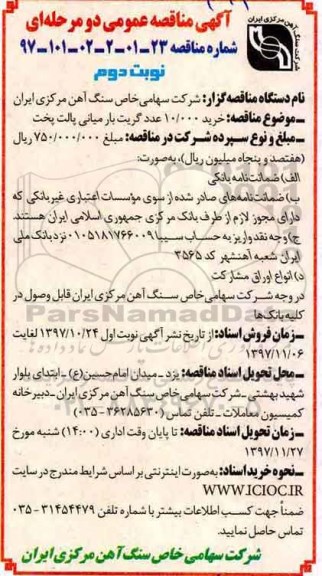 آگهی مناقصه عمومی دو مرحله‌ای
شماره مناقصه ۲۳-۰۱-۲-۰۲-۱۰۱-۹۷
نوبت دوم
شرکت سنگ آهن مرکزی ایران
نام دستگاه مناقصه‌گزار: شرکت سهامی خاص سنگ آهن مرکزی ایران
ـ موضوع مناقصه: خرید ۱۰/۰۰۰ عدد گریت بار میانی پالت پخت
ـ مبلغ و نوع سپرده شرکت در مناقصه: مبلغ ۷۵۰/۰۰۰/۰۰۰ ریال
(هفتصد و پنجاه میلیون ریال)، به‌صورت:
الف) ضمانت‌نامه بانکی
ب) ضمانت‌نامه‌های صادر شده از سوی مؤسسات اعتباری غیربانکی که
دارای مجوز لازم از طرف بانک مرکزی جمهوری اسلامی ایران هستند.
ج) وجه نقد واریز به حساب سیبا ۰۱۰۵۱۸۱۷۶۶۰۰۹ نزد بانک ملی
ایران شعبه آهنشهر کد ۳۵۶۵
د) انواع اوراق مشارکت
در وجه شرکت سهامی خاص سنگ آهن مرکزی ایران قابل وصول در
کلیه بانک‌ها
ـ زمان فروش اسناد: از تاریخ نشر آگهی نوبت اول ۱۳۹۷/۱۰/۲۴ لغایت
۱۳۹۷/۱۱/۰۶
ـ محل تحویل اسناد مناقصه: یزد ـ میدان امام حسین (ع) ـ ابتدای بلوار
شهید بهشتی ـ شرکت سهامی خاص سنگ آهن مرکزی ایران ـ دبیرخانه
کمیسیون معاملات ـ تلفن تماس (۳۶۲۸۵۶۳۰-۰۳۵)
ـ زمان تحویل اسناد مناقصه: تا پایان وقت اداری (۱۴:۰۰) شنبه مورخ
۱۳۹۷/۱۱/۲۷
ـ نحوه خرید اسناد: به‌صورت اینترنتی بر اساس شرایط مندرج در سایت
WWW.ICIOC.IR
ضمناً جهت کسب اطلاعات بیشتر با شماره تلفن ۳۱۴۵۴۴۷۹-۰۳۵
تماس حاصل نمایید.
شرکت سهامی خاص سنگ آهن مرکزی ایران
ParsNamadData